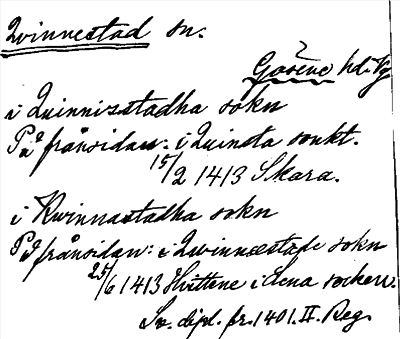 Qvinnestad sn.
Gäsene hd. Vg
i Quinnisstadha sokn
På frånsidan: i Quinsta sonkt.
15/2 1413 Skara.
i Kwinnastadha sokn
På frånsidan: i Qwinnæstafe sokn
25/6 1413 Hvittene i Lena socken.
Sv. dipl. fr. 1401. II. Reg.